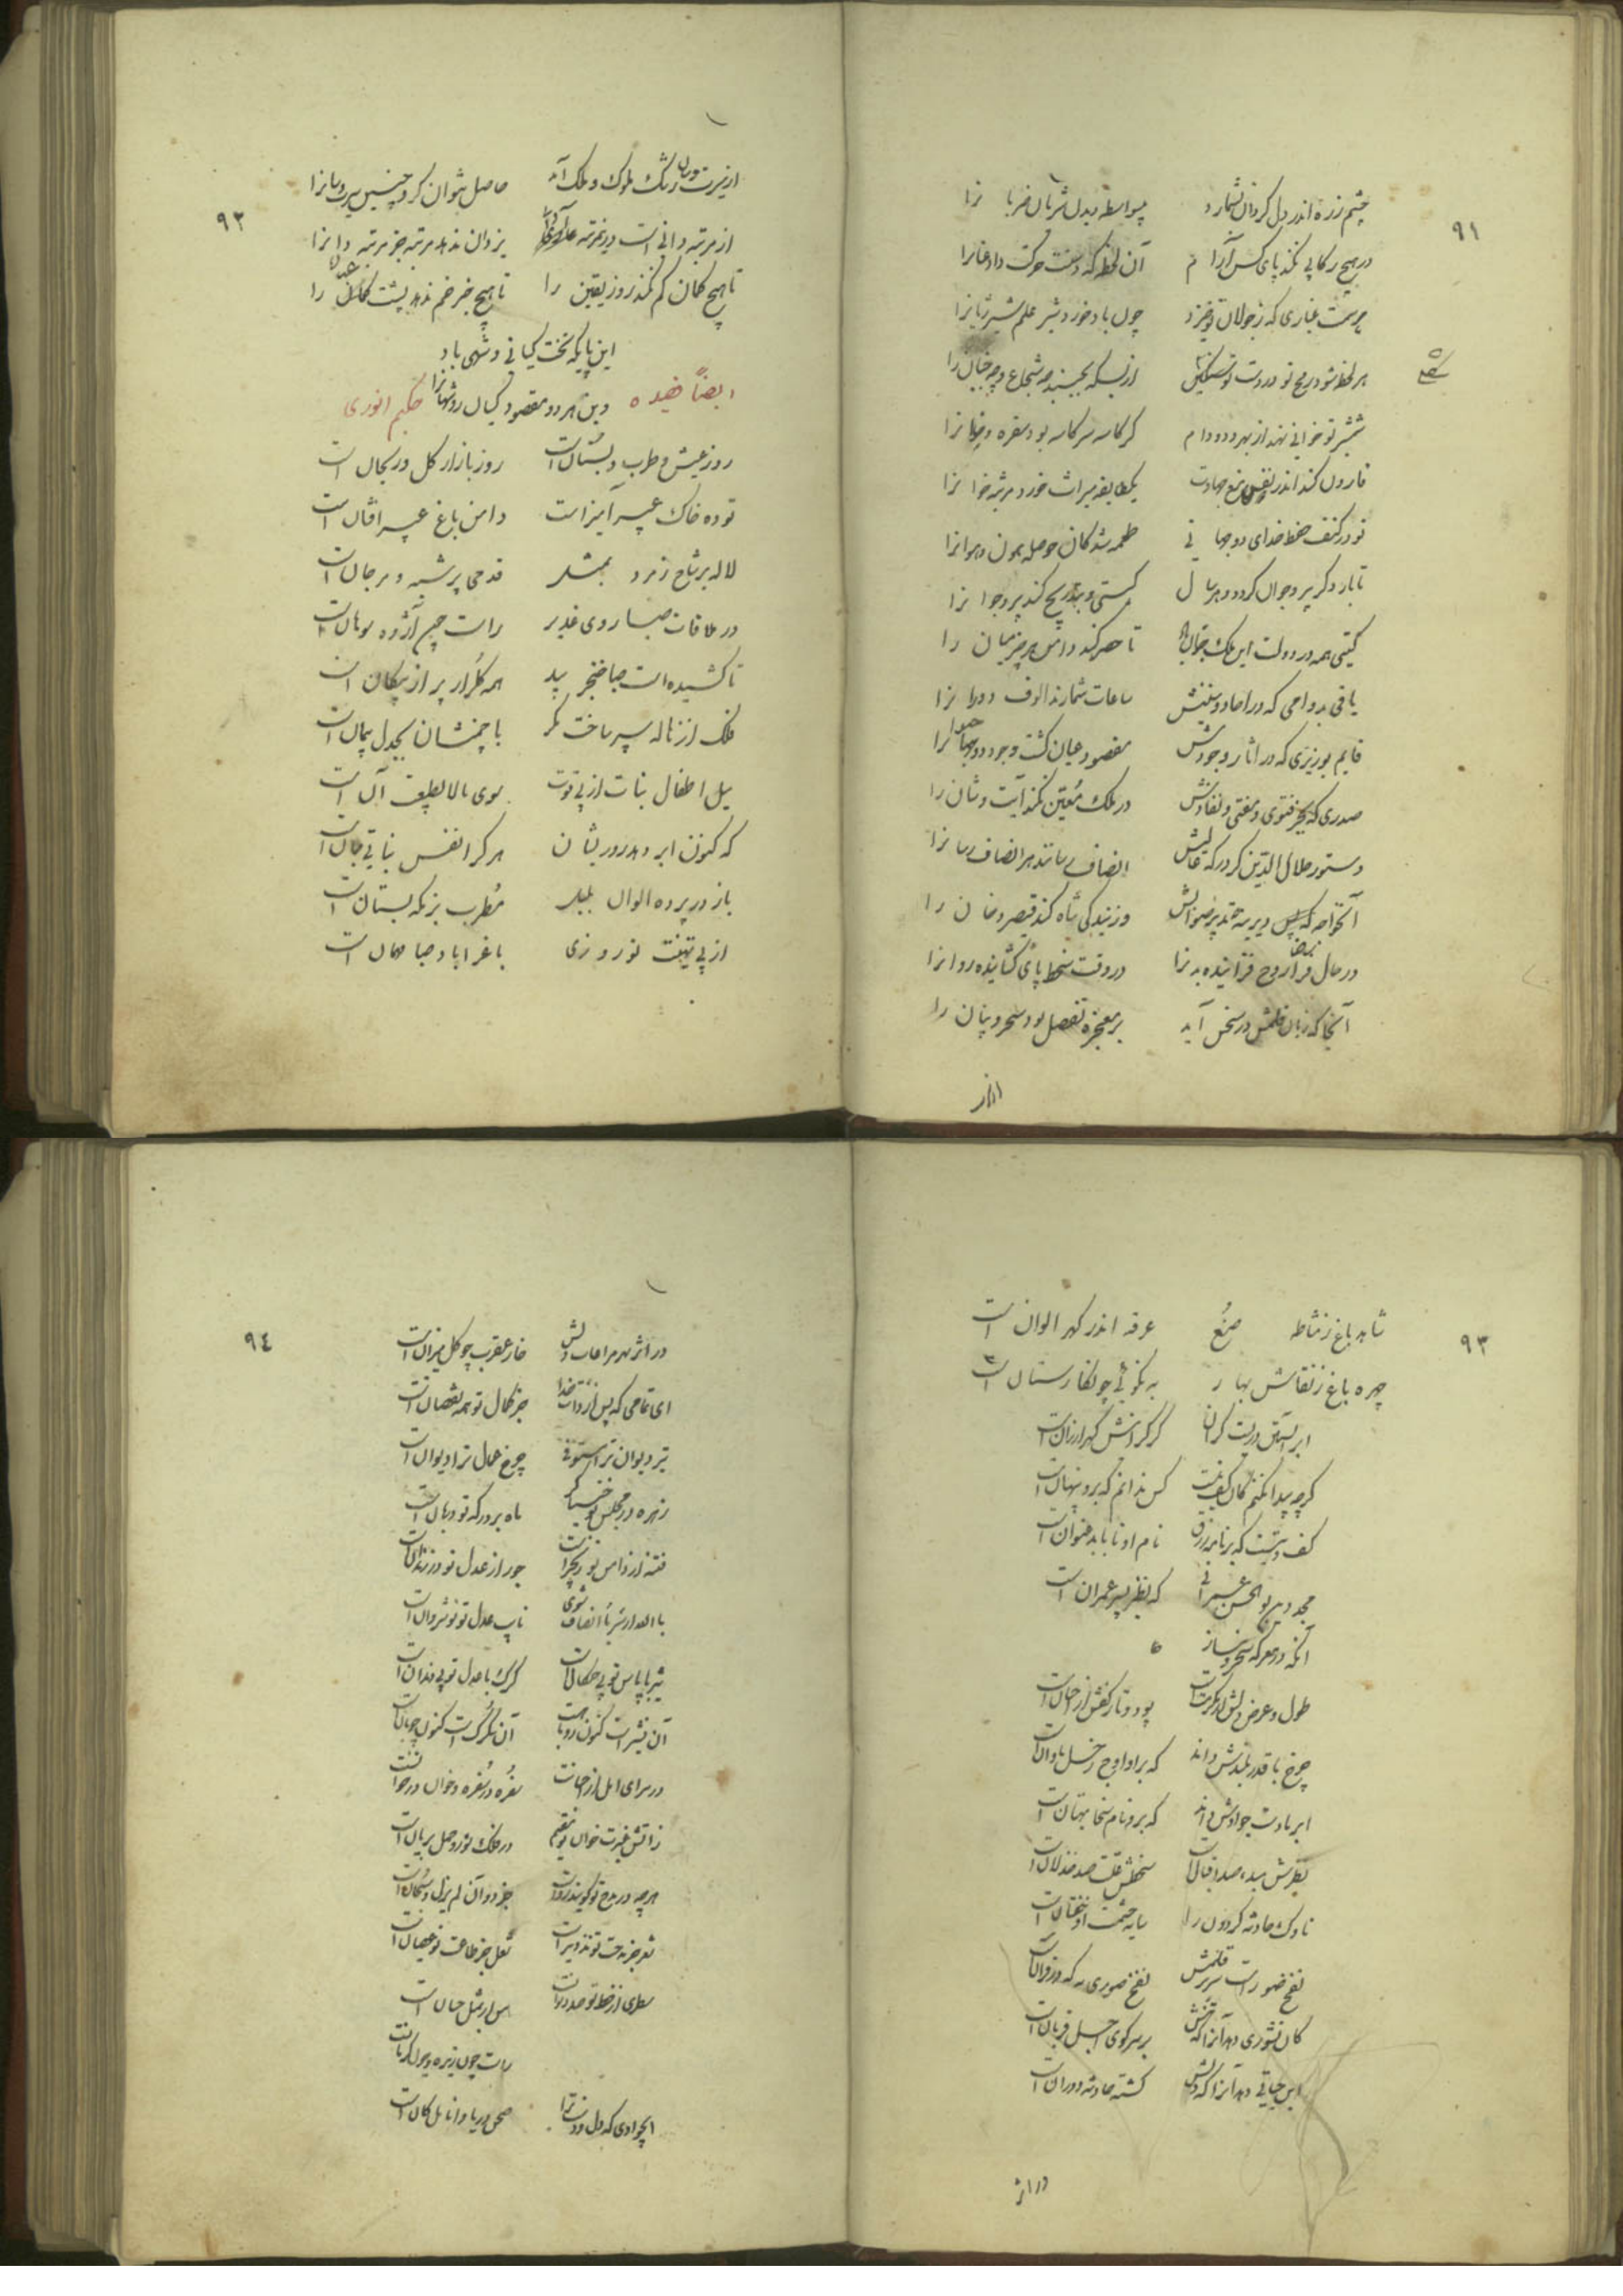 ٩١
چشم زره اندر دل گردان بشمارد بیواسطه دیدن شریان ضربانرا
در هیچ رکابی نکند پای کس آرام آن لحظه که دستت حرکت داد عنانرا
بر سمت غباری که ز جولان تو خیزد چون باد خورد شیر علم شیر ژیانرا
هر لحظه شود رمح تو در دست تو سلکی از بسکه بچیند چه شجاع و چه جبان را
شمشیر تو خوانی نهد از بهر دد و دام کز کاسه سر کاسه بود سفره و خوانرا
قارون کند اندر دو نفس تیغ جهادت یک طایفه میراث خور و مرثیه خوانرا
تو در کنف حفظ خدای دو جهانی طعمه شدگان حوصله هون و هوانرا
تا بار دگر پیر و جوان گردد هر سال گیتی و بتدریج کند پیر و جوانرا
گیتی همه در دولت این ملک جوان باد تا حصر کند دامن هر چیز میان را
باقی بدوامی که در احاد سنینش ساعات شمارند الوف دورانرا
قایم بوزیری که در آثار وجودش مقصود عیان گشت وجود حیوانرا
صدری که بجز فتوی مفتی نفاذش در ملک معین نکند آیت و شان را
دستور جلال الدین کز درگه عالیش انصاف رسانند مر انصاف رسانرا
آنخواجه که پیر در بندگی شاه کند قیصر و خان را
در حال رضا روح فزاینده بدنرا در وقت سخط پای گشاینده روانرا
آنجا که زبان قلمش در سخن آید بر معجزه تفضیل بود سحر و بیان را
از
٩٢
از سیرت و سان رشک ملوک و ملک آمد حاصل نتوان کرد چنین سیرت و سانرا
از مرتبه دانی است در مرتبه یزدان ندهد مرتبه جز مرتبه دانرا
تا هیچ گمان کم نکند روز یقین را تا هیچ خبر خم ندهد پشت عیان را
این پایگه تخت کیانی و شهی باد
وین هر دو مقصود کیان را و شهانرا
ایضاً قصیده حکیم انوری
روز عیش و طرب و بستان است روز بازار گل و ریحان است
توده خاک عبیر آمیزاست دامن باغ عبیر افشان است
لاله بر شاخ زمرد بمثل قدحی پر شبه و مرجان است
در ملاقات صبا روی غدیر راست چون آژده سوهان است
تا کشیده است صبا خنجر بید همه گلزار پر از پیکان است
فلک از ژاله سپر ساخت مگر با چمنشان بجدل پیمان است
میل اطفال نبات از پی قوت سوی بالا بطبع آن است
که کنون ابر دهد روزیشان هر کرا نفس نباتی جان است
باز در پرده الوان بلبل مطرب بزمگه بستان است
از پی تهنیت نوروزی باغ را باد صبا مهمان است
٩٣
شاهد باغ ز مشاطه صنع غرقه اندر گهر الوان است
چهره باغ ز نقاش بهار به نکوئی چو نگارستان است
ابر آبستن دریست گران گر گرانش گهر ارزان است
گرچه پیدا نکنم کان کف کیست کس ندانم که برو پنهان است
کف دستیست که بر نامه رزق نام او تا بابد عنوان است
مجد دین بوالحسن عمرانی که بنظر پسر عمران است
آنکه در معرکه سحر و نیاز
طول و عرض دلش از مکرمت است پود و تار کفش از احسان است
چرخ با قدر بلندش داند که بر او اوج زحل تاوان است
ابر با دست جوادش داند که برو نام سخا بهتان است
نظرش مبدء صد اقبال است سخطش علت صد خذلان است
ناوک حادثه گردون را سایه حشمت او خفتان است
نفخ صور است صریر قلمش نفخ صوری نه که در قرآن است
کان نشوری دهد آنرا که تنش بر سر کوی اجل قربان است
این حیاتی دهد آنرا که دلش کشته حادثه دوران است
در اثر
٩٤
در اثر بهر مراعات دلش خار عقرب چو گل میزان است
ای تمامی که پس از ذات خدا جز کمال تو همه نقصان است
تیر دیوان ترا مستوفی چرخ عمال ترا دیوان است
زهره در مجلس تو خنیاگر ماه بر درگه تو دربان است
فتنه از امن تو در زنجیر است جور از عدل تو در زندان است
نایب عدل تو نوشروان است
شیر با پاس تو بی چنگال است گرگ با عدل تو بی دندان است
آن نه شیر است کنون روباهست آن نه گرگ است کنون چوپان است
در سرای امل از جودت سفره در سفره و خوان در خوان است
زآتش غیرت خوان تو مقیم در فلک ثور و حمل بریان است
هرچه در مدح تو گویند رواست جز دو آن لم یزل و سبحان است
شعر جز مدحت تو تزویر است شغل جز طاعت تو عصیان است
سطری از خط تو صد
راست چون زیره و چون کرمان است
ای جوادی که دل و دست ترا صحن دریا و انامل کان است